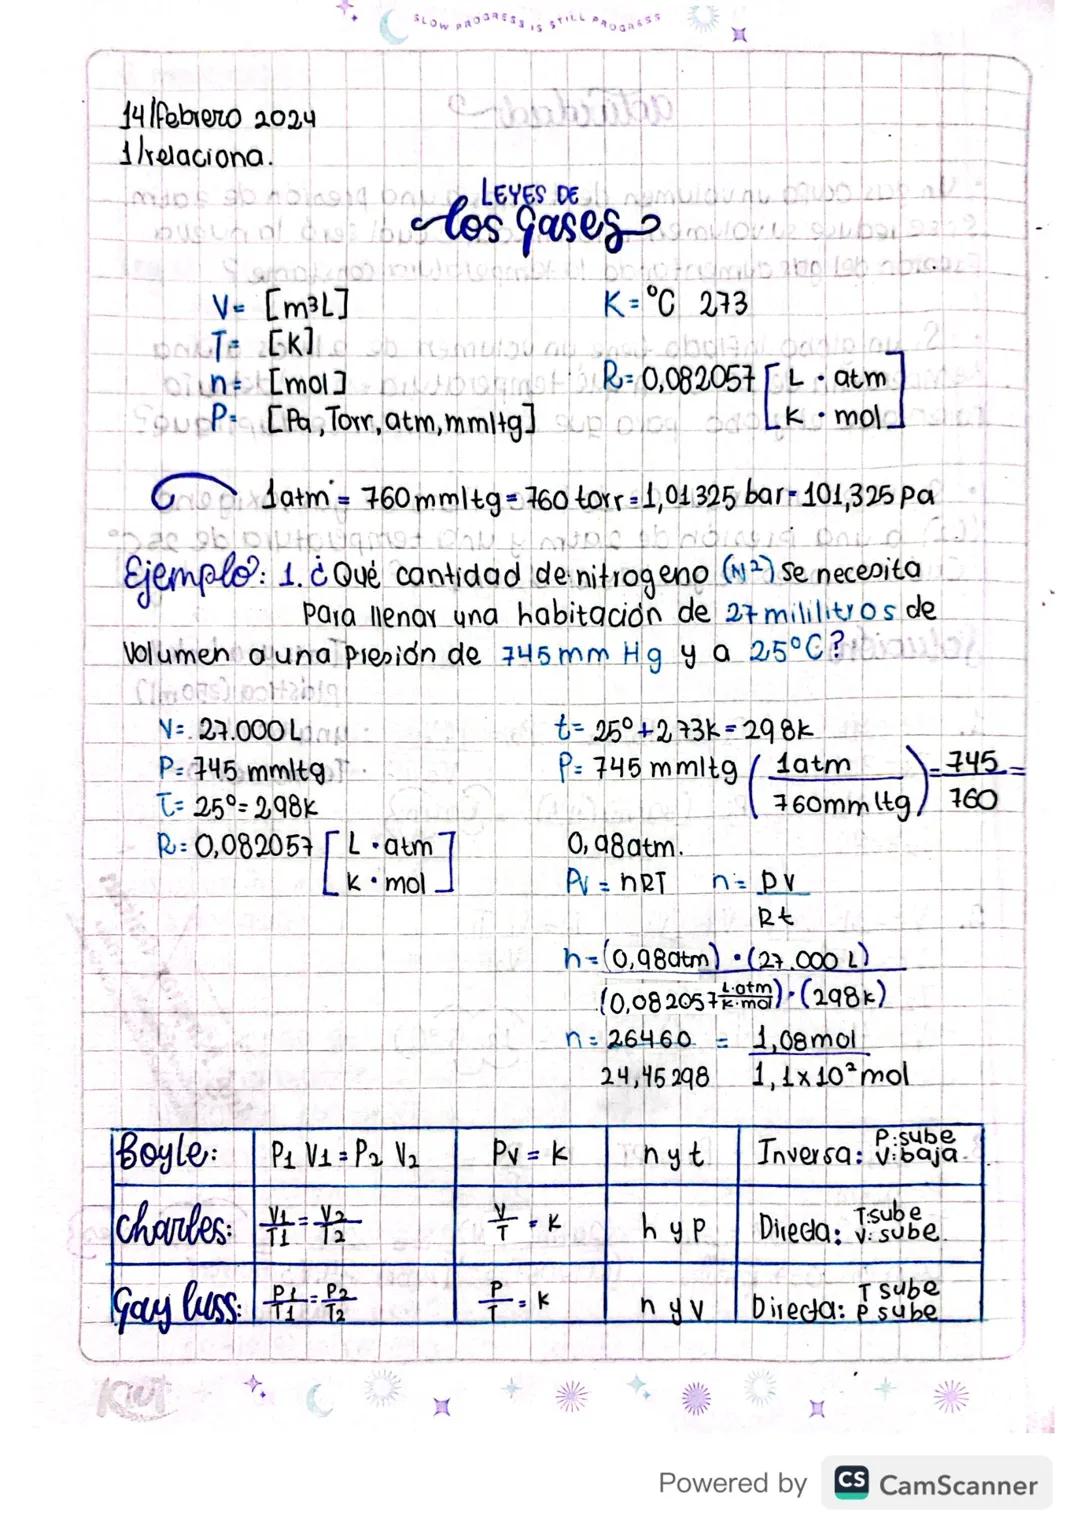 SLOW PROGRESS IS STILL PROGRESS
14/febrero 2024
1/relaciona.
LEYES DE
los gases
V= [m³L]
T= [K]
n= [mol]
P= [Pa, Torr, atm, mmHg]
K=°C 273
R=0,082057 [L · atm
K · mol]
1atm = 760mmHg=760 torr=1,01325 bar=101,325 Pa
Ejemplo: 1. ¿Qué cantidad de nitrogeno (N²) se necesita
Para llenar una habitación de 27 mililitros de
Volumen a una presión de 745mm Hg y a 25°C?
V= 27.000L
P=745 mmHg
T= 25°=298K
R=0,082057 [L · atm
K · mol]
t= 25°+273K=298K
P= 745 mmHg (1atm
760mmHg) = 745 =
760
0,98atm.
PV = nRT n= PV
Rt
n=(0,98atm) · (27.000 L)
(0,082057 L·atm
K·mol) · (298K)
n= 26460 = 1,08mol
24,45298 1,1x10² mol
Boyle: P1 V1=P2 V2 PV=K n y t Inversa: P:sube
V:baja.
Charles: V1
T1 = V2
T2 V
T = K n y P Directa: T:sube
V:sube.
Gay luss: P1
T1 = P2
T2 P
T = K n y v Directa: T sube
P sube
Kiut
Powered by CS CamScanner